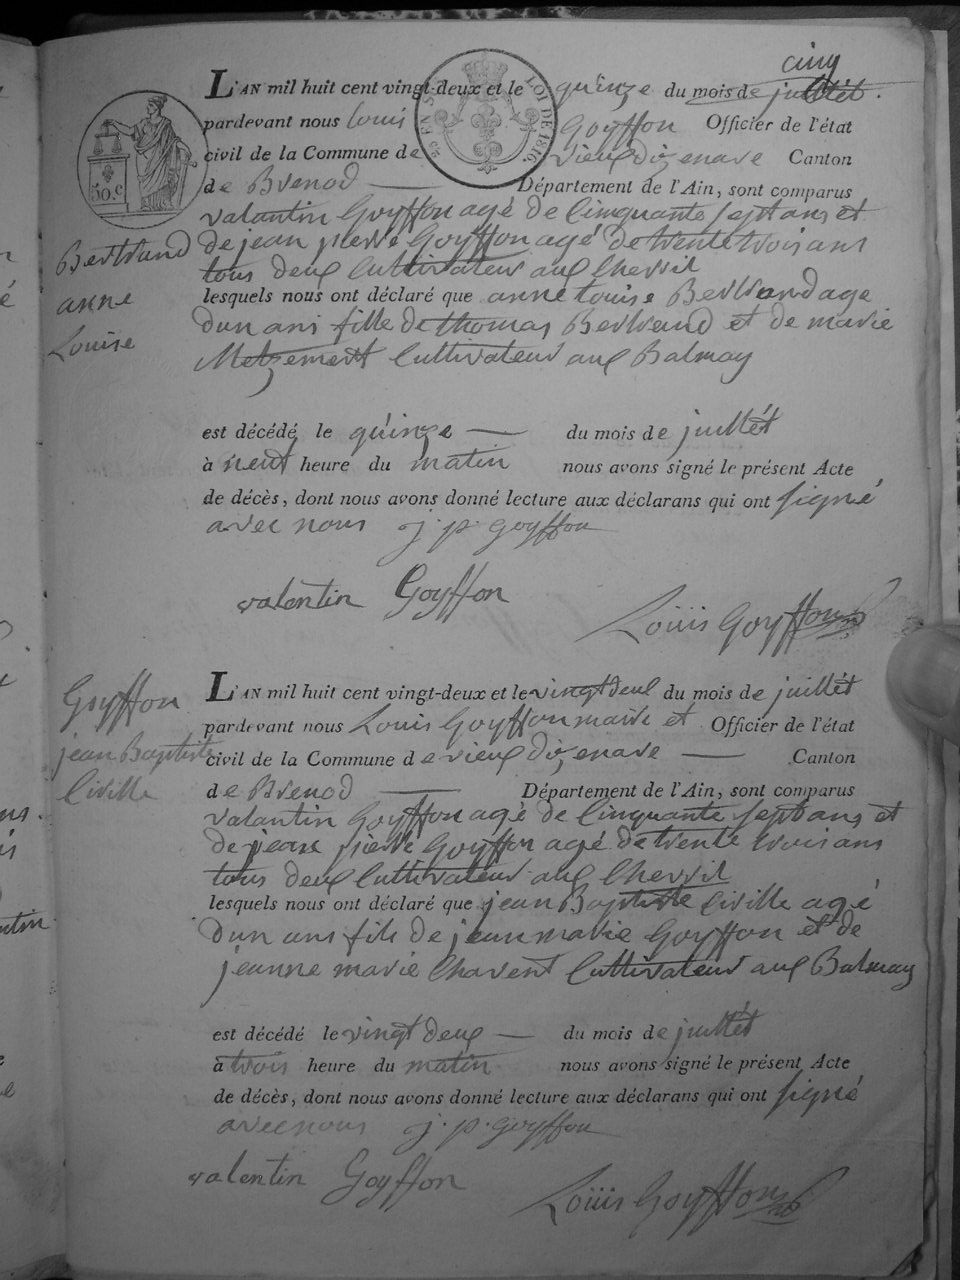 cinq
L'AN mil huit cent vingt-deux et le quinze du mois de juillét.
pardevant nous Louis Goyffon Officier de l'état
civil de la Commune de vieuxdizenave Canton
de Brenod Département de l'Ain, sont comparus
50 c
EN SUS
LOI DE 1816.
valantin Goyffon agé de Cinquante sept ans et
de jean pierre Goyffon agé de trente trois ans
tous deux Cultivateur aux Chevril
Bertrand
anne
Louise
lesquels nous ont déclaré que anne Louise Bertrand age
dun ans fille de thomas Bertrand et de marie
Cultivateur aux Balmay
est décédé le quinze du mois de juillét
à neuf heure du matin nous avons signé le présent Acte
de décès, dont nous avons donné lecture aux déclarans qui ont signé
avec nous j. p. goyffon
valentin Goyffon
Loüis Goyffon
Goyffon
jean Baptiste
Civille
L'AN mil huit cent vingt-deux et le vingt deux du mois de juillét
pardevant nous Louis Goyffon maire et Officier de l'état
civil de la Commune de vieux dizenave Canton
de Brenod Département de l'Ain, sont comparus
valantin Goyffon agé de Cinquante sept ans et
de jean pierre Goyffon agé de trente trois ans
tous deux Cultivateur aux Chevril
lesquels nous ont déclaré que jean Baptiste Civille agé
dun ans fils de jean marie Goyffon et de
jeanne marie Charent Cultivateur aux Balmay
est décédé le vingt deux du mois de juillét
à trois heure du matin nous avons signé le présent Acte
de décès, dont nous avons donné lecture aux déclarans qui ont signé
avec nous j. p. goyffon
valentin Goyffon
Loüis Goyffon